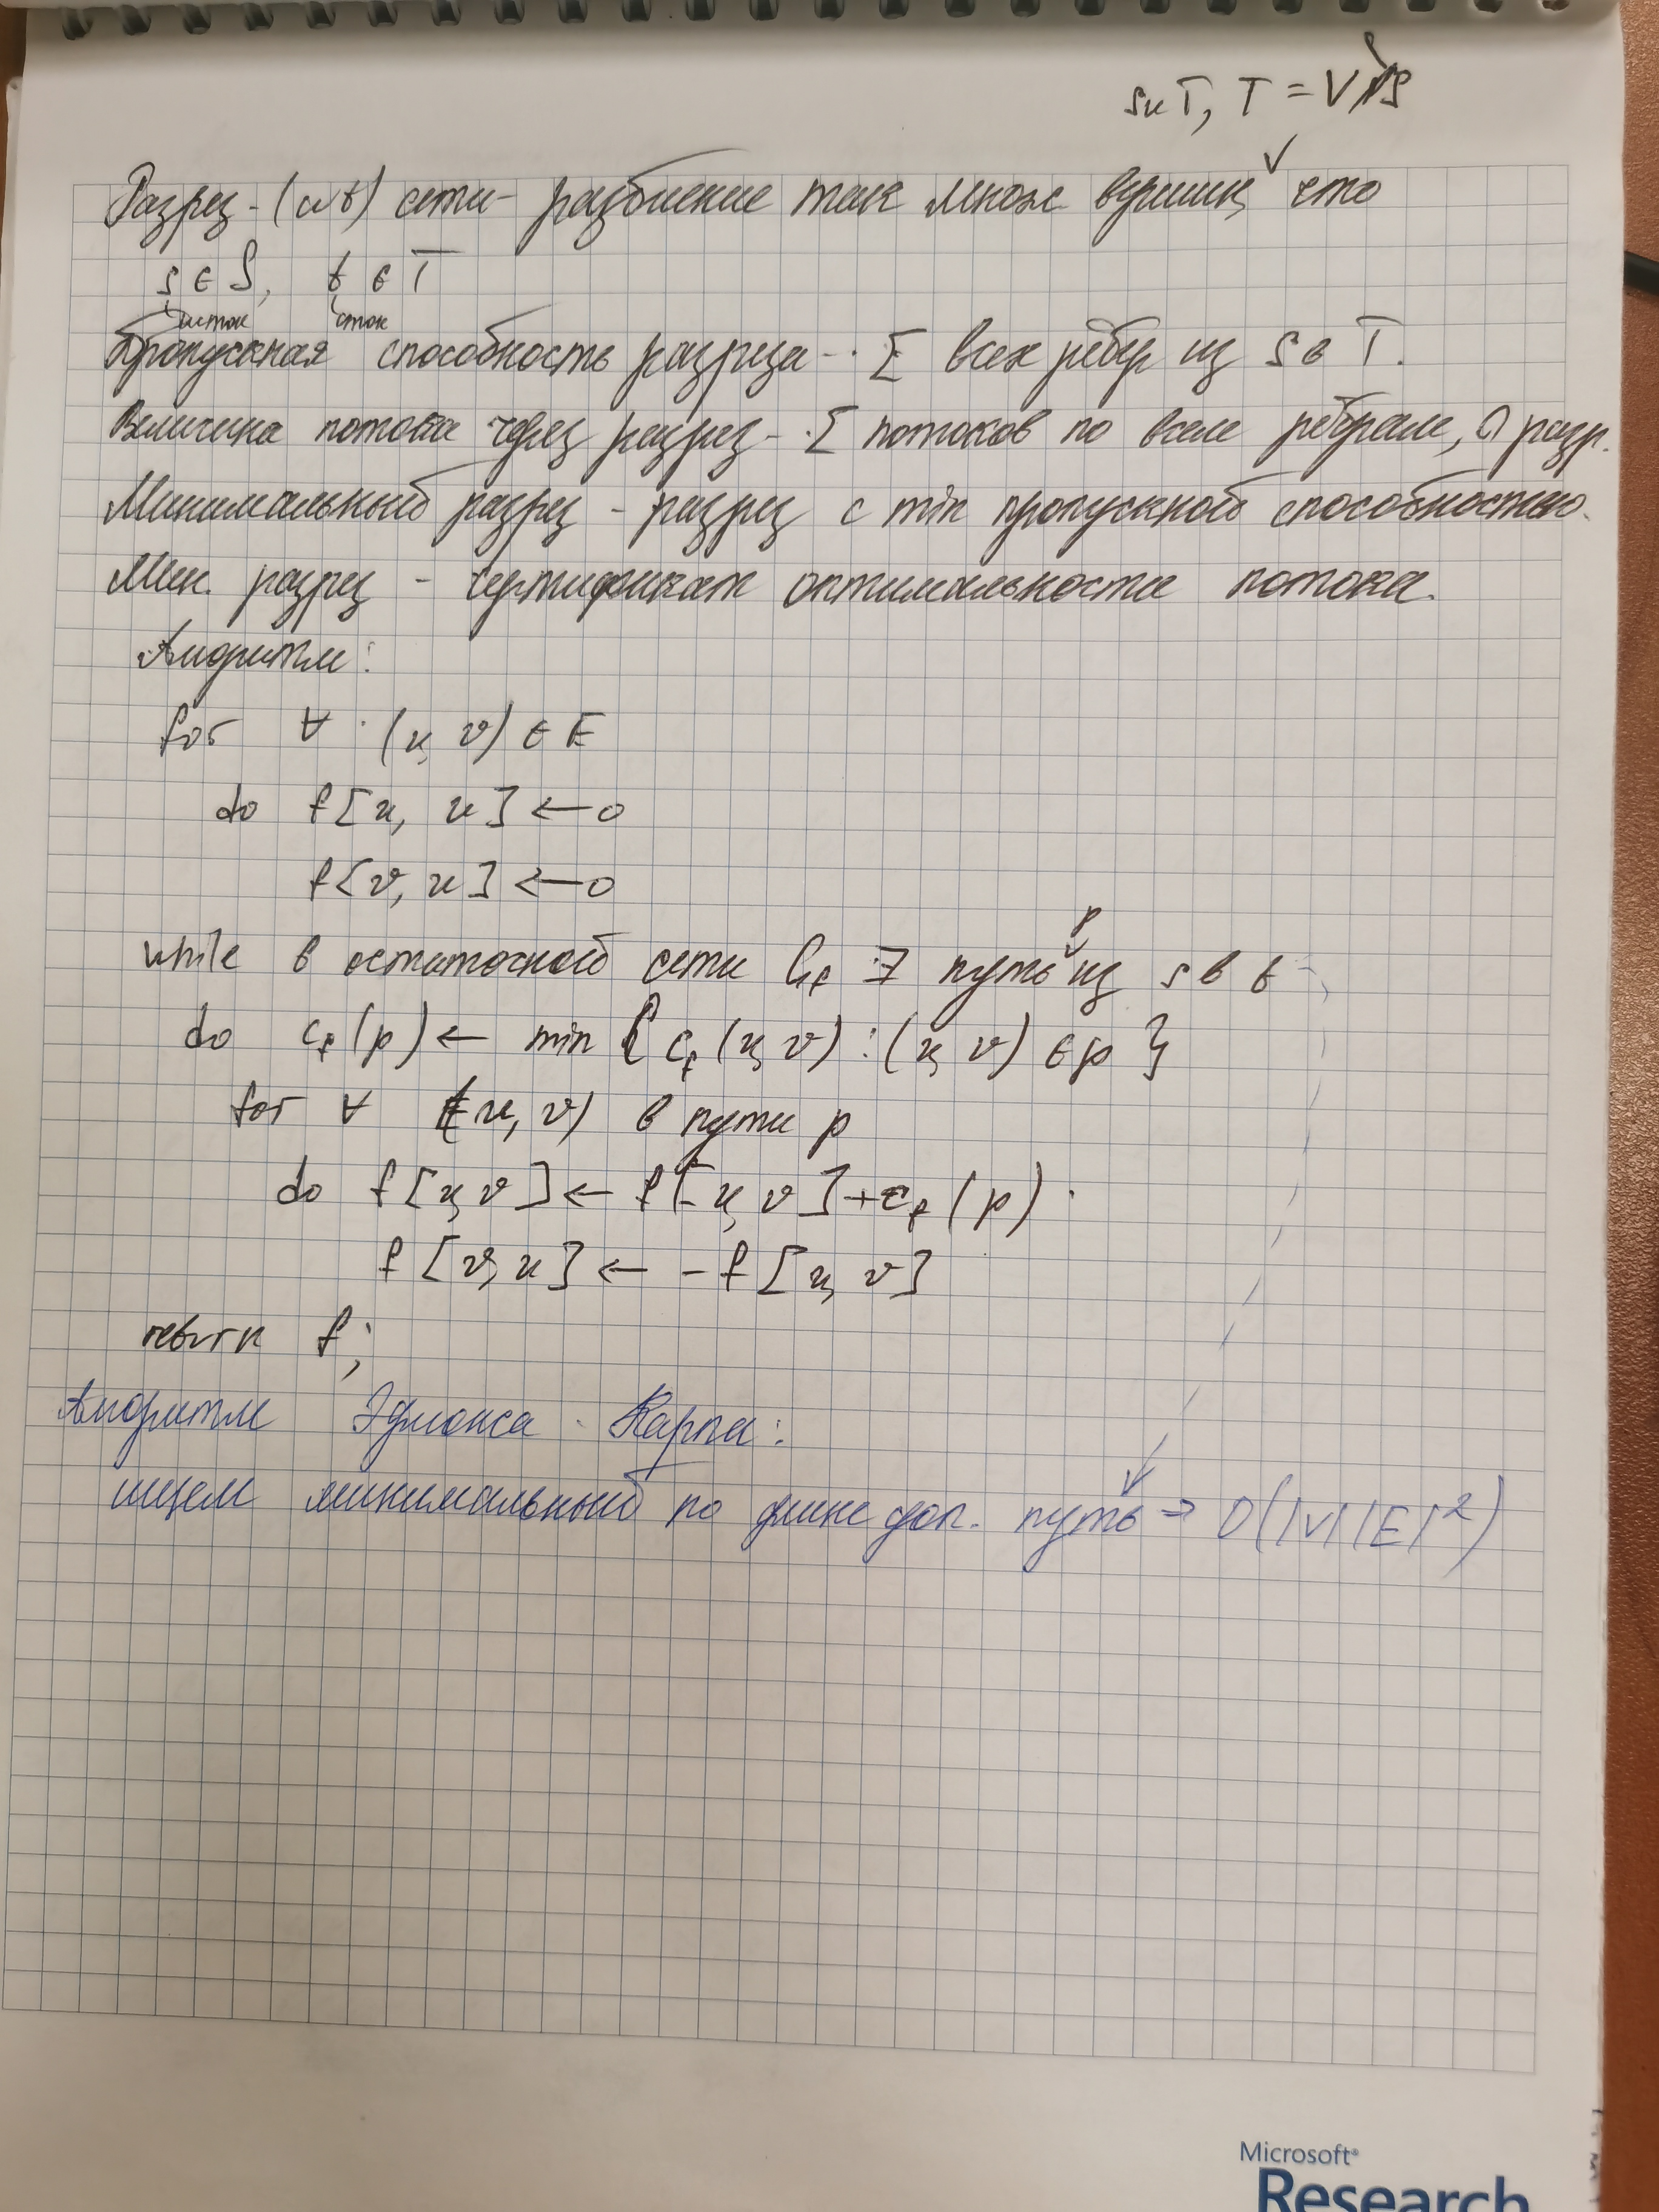 S и T, T = V \ S
Разрез - (s t) сети - разбиение так множ вершин, что
s ∈ S, t ∈ T
исток сток
Пропускная способность разреза - Σ всех рёбер из S в T.
Величина потока через разрез - Σ потоков по всем рёбрам, ∩ разр.
Минимальный разрез - разрез с min пропускной способностью.
Мин. разрез - сертификат оптимальности потока.
Алгоритм:
for ∀ (u, v) ∈ E
do f[u, u] ← 0
f[v, u] ← 0
p
while в остаточной сети Gf ∃ путь из s в t
do cf(p) ← min { cf(u, v) : (u, v) ∈ p }
for ∀ (u, v) в пути p
do f[u, v] ← f[u, v] + cf(p)
f[v, u] ← - f[u, v]
return f;
Алгоритм Эдмонса - Карпа:
ищем минимальный по длине доп. путь → O(|V||E|²)
Microsoft®
Research